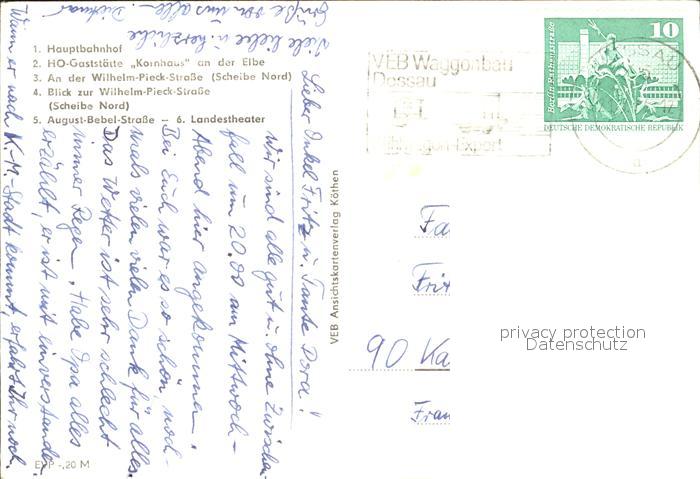 1. Hauptbahnhof
2. HO-Gaststätte „Kornhaus" an der Elbe
3. An der Wilhelm-Pieck-Straße (Scheibe Nord)
4. Blick zur Wilhelm-Pieck-Straße
(Scheibe Nord)
5. August-Bebel-Straße - 6. Landestheater
Lieber Onkel Fritz u. Tante Dora!
Wir sind alle gut u. ohne Zwischen-
fall um 20.00 am Mittwoch-
Abend hier angekommen.
Bei Euch war es so schön, noch-
mals vielen vielen Dank für alles.
Das Wetter ist sehr schlecht
immer Regen. Habe Opa alles
erzählt, er ist mit einverstanden.
Wann er nach K.-M.-Stadt kommt, erfahrt Ihr noch.
Viele liebe u. herzliche
Grüße von uns allen. Dietmar
EVP -,20 M
VEB Ansichtskartenverlag Köthen
VEB Waggonbau
Dessau
Export
DESSAU
10
Berlin, Rathausstraße
DEUTSCHE DEMOKRATISCHE REPUBLIK
Fa
Frit
90 Ka
Fran
privacy protection
Datenschutz